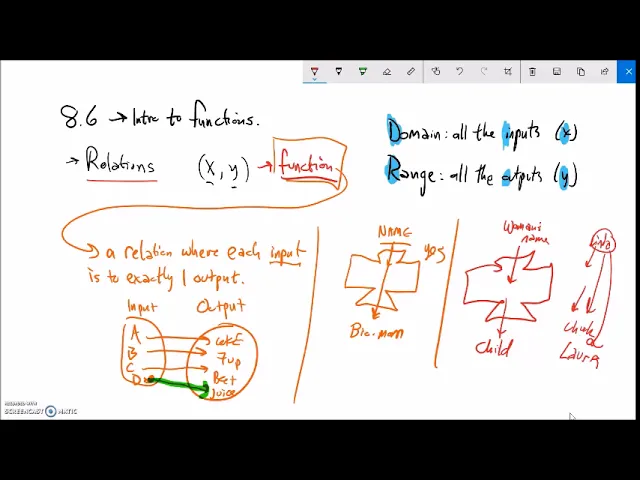 8.6 → Intro to functions.
→ Relations (x, y) → function
Domain: all the inputs (x)
Range: all the outputs (y)
↳ a relation where each input
is to exactly 1 output.
Input Output
A
B
C
D
COKE
7up
Beet
Juice
NAME
yes
Bio-mom
Woman's
name
Child
Laura
RECORDED WITH
SCREENCAST MATIC